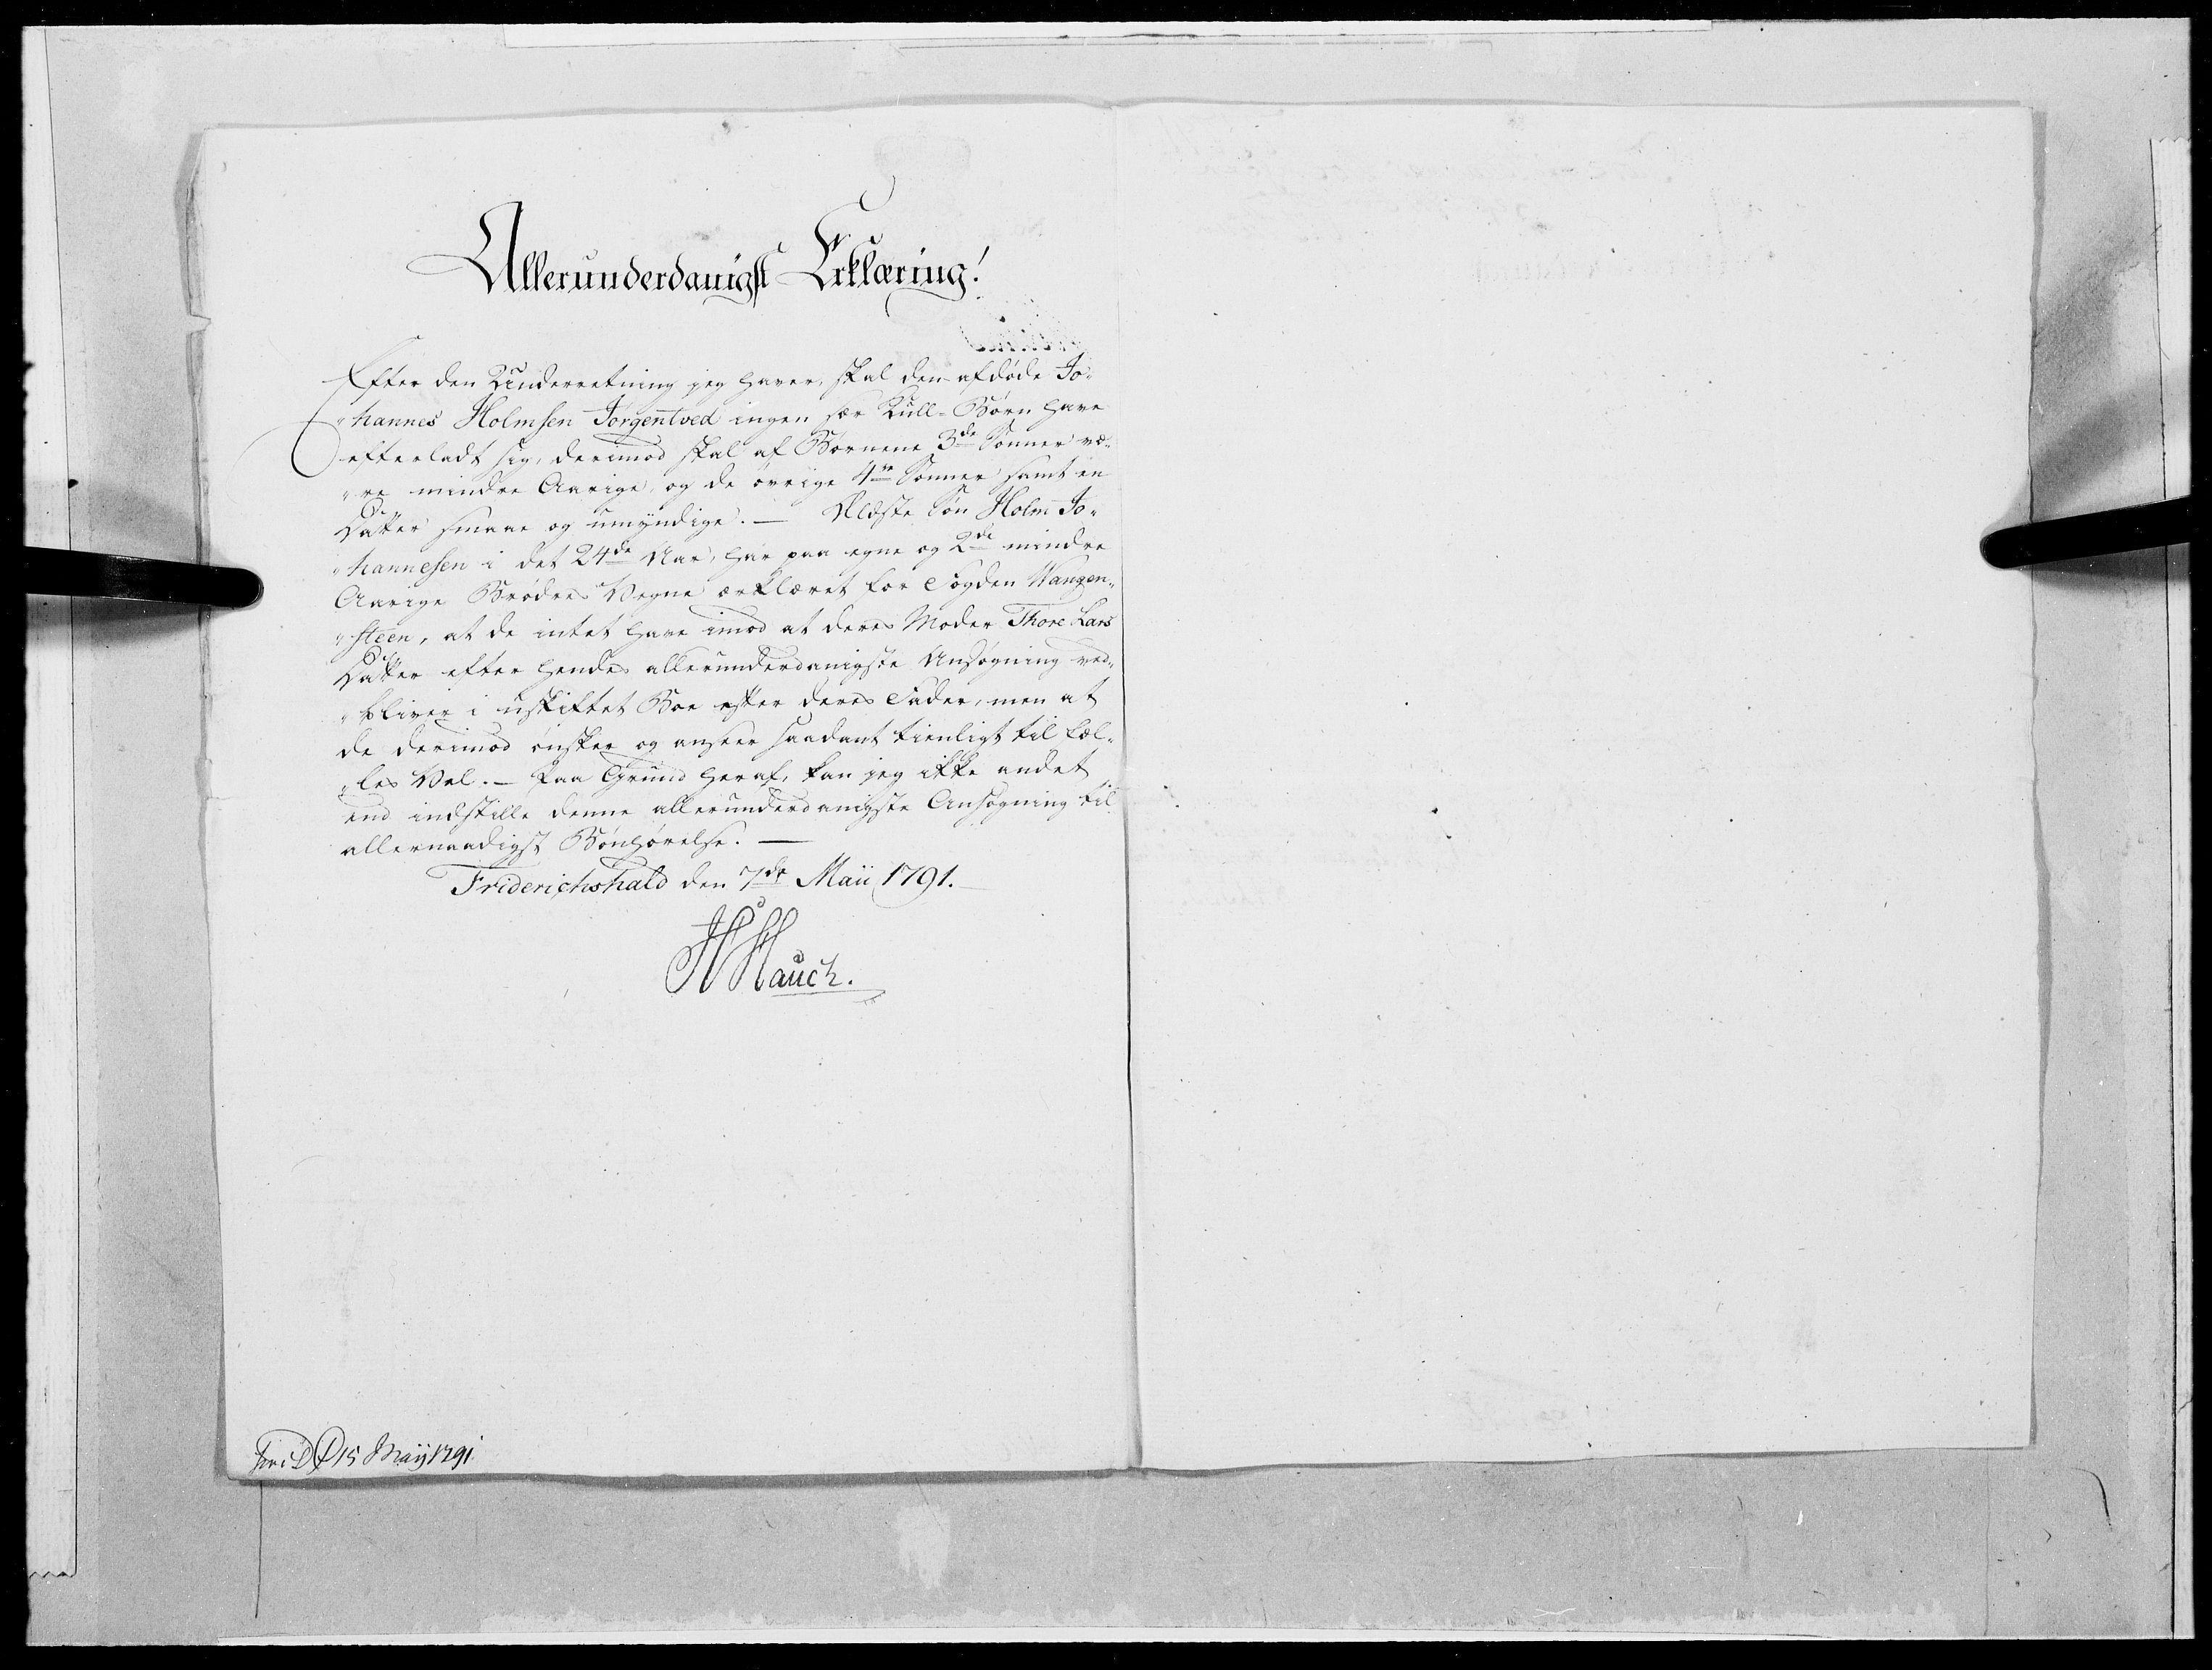 Allerunderdanigst Erklæring!
Efter den Underretning jeg haver, skal den afdøde Jo„
„hannes Holmsen Jørgentved ingen sær Kull-Børn have
efterladt sig, derimod skal af Børnene 3de Sønner væ„
„re mindre Aarige, og de øvrige 4re Sønner samt en
Datter smaae og umÿndige. — Ældste Søn Holm Jo„
„hannesen i det 24de Aar, har paa egne og 2de mindre
Aarige Brødres Vegne erklæret for Fogden Wangen„
„steen, at de intet have imod at deres Moder Thore Lars
Datter efter hendes allerunderdanigste Ansøgning ved„
„bliver i uskiftet Boe efter deres Fader, men at
de derimod ønsker og anseer saadant tienligt til fæl„
„les Vel. — Paa Grund heraf, kan jeg ikke andet
end indstille denne allerunderdanigste Ansøgning til
allernaadigst Bønhørelse. —
Friderichshald den 7de Maii 1791.
H Hauch.
15 Maij 1791